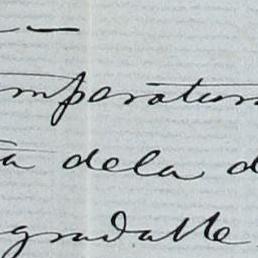 mperatur
a dela d
gradable